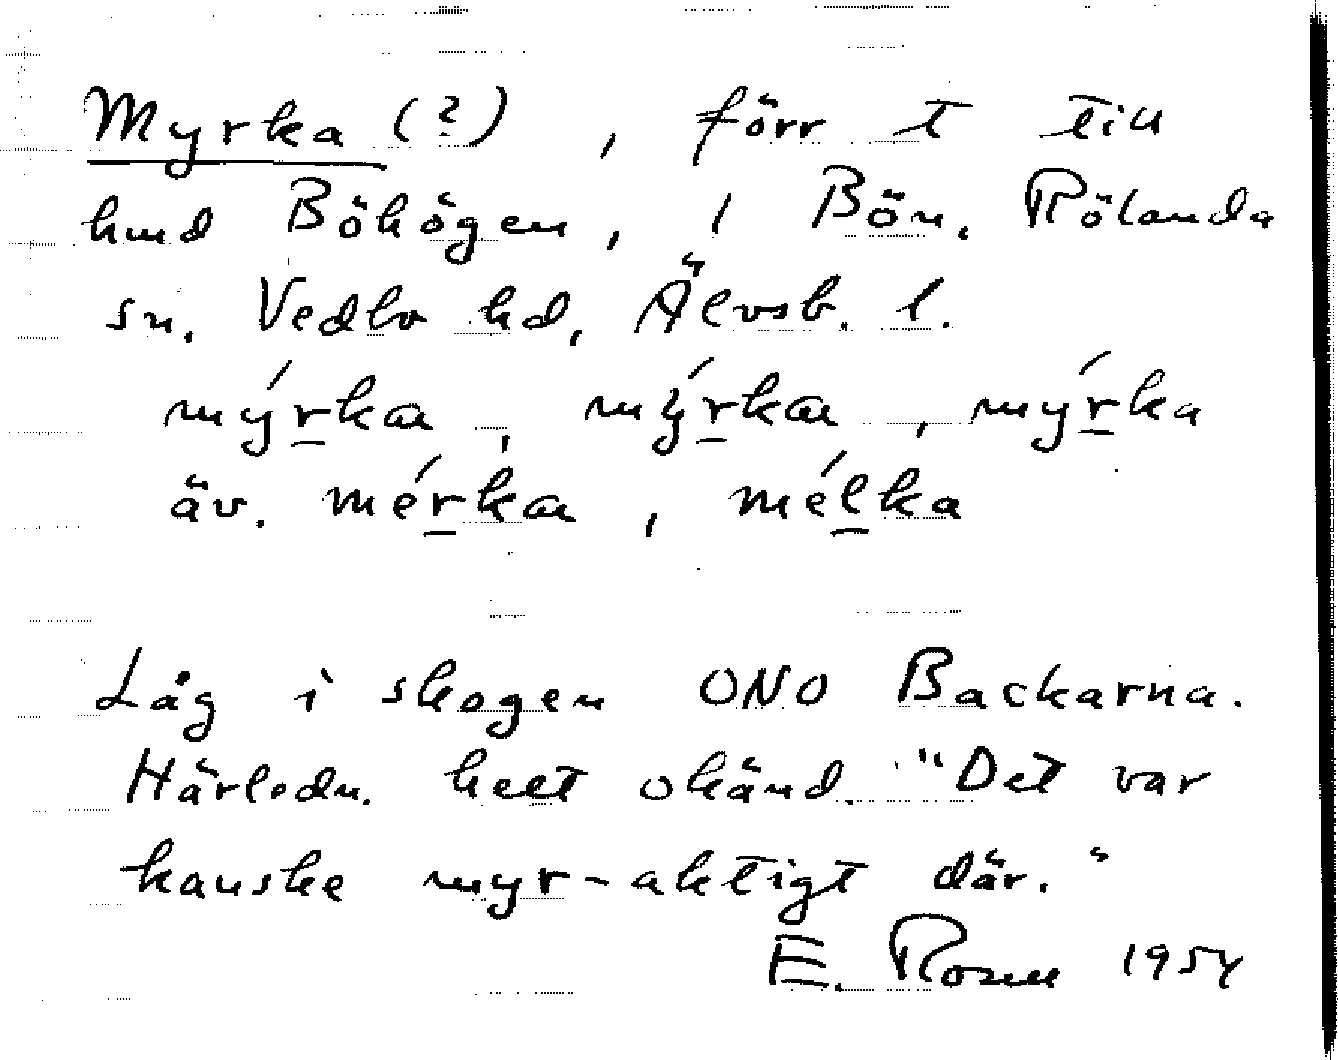 Myrka (?), förr t till
hmd Bökögen, i Bön, Rölanda
sn. Vedbo hd, Älvsb. l.
mýrka, mýrka, mýrka
äv. mérka, mélka
Låg i skogen ONO Backarna.
Härledn. helt okänd. "Det var
kanske myr-aktigt där."
E. Rosell 1954